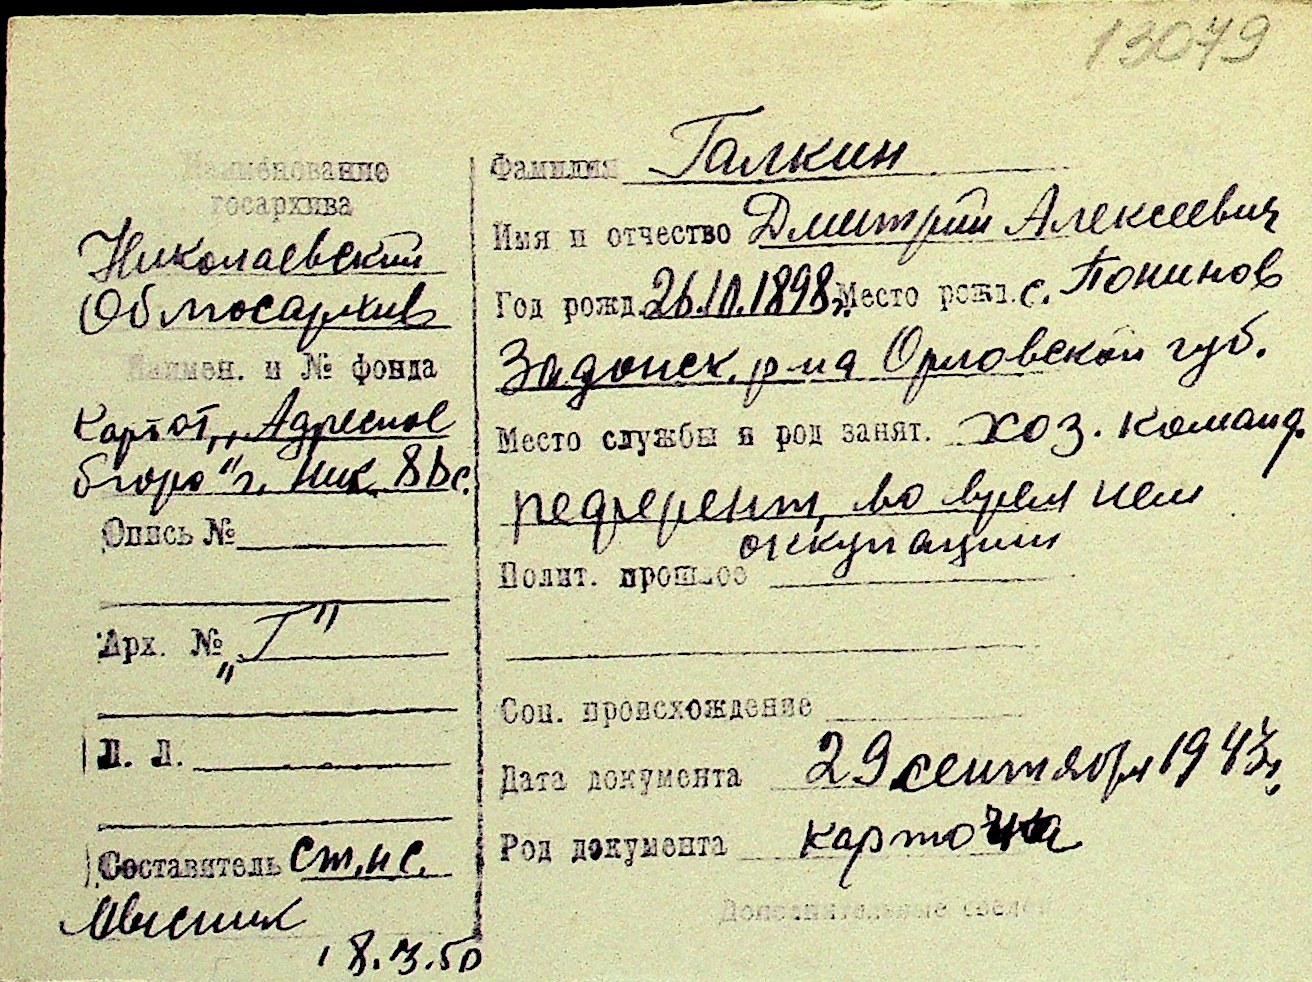 13079
Наименование
госархива
Николаевский
Облгосархив
Наимен. и № фонда
Картот. „Адресное
бюро" г. Ник.
Опись №
Арх. № „Г"
Л. Л.
Составитель ст. н с.
8.3.50
Фамилия Галкин
Имя и отчество Дмитрий Алексеевич
Год рожд. 26.10.1898г. Место рожд. с. Понинов
Задонск. р-на Орловской губ.
Место службы и род занят. хоз. команд.
референт, во время нем
оккупации
Полит. прошлое
Соц. происхождение
Дата документа 29 сентября 1943г.
Род документа карточка
Дополнительные сведен